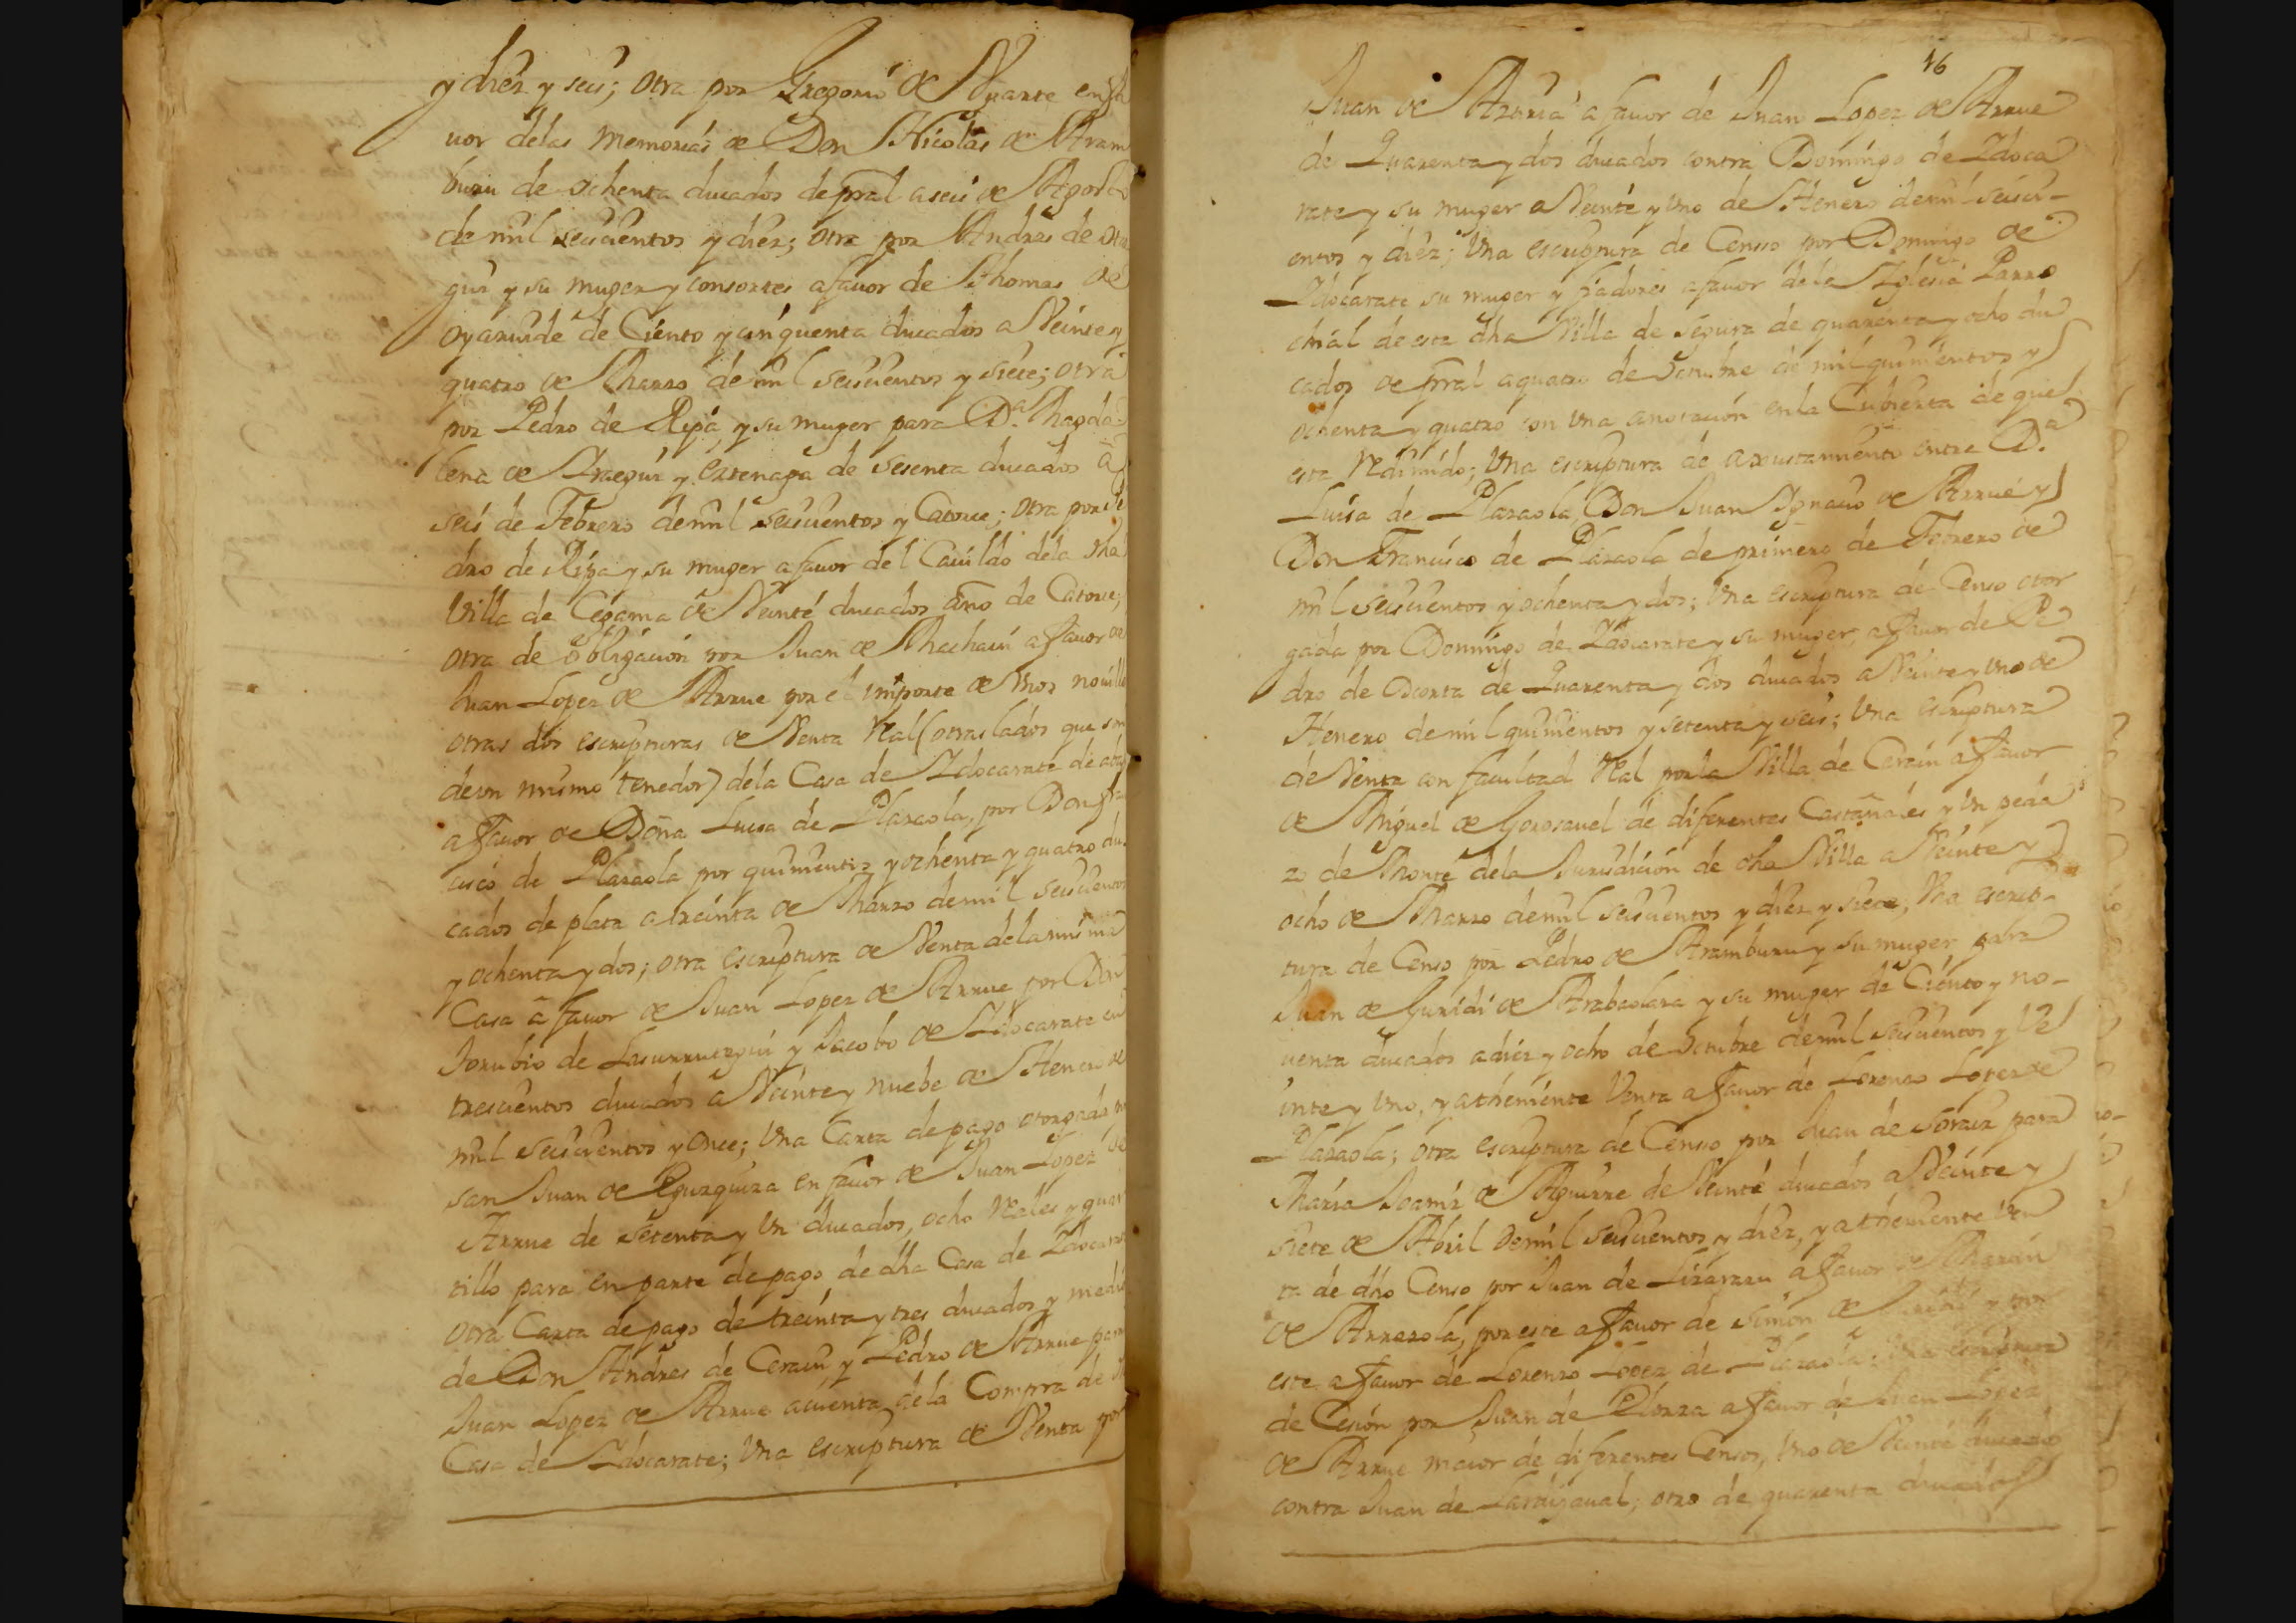 y diez y seis; otra por Gregorio de Yyarte en fa
uor delas Memorias de Don Nicolas de Aram
buru de ochenta ducados de prāl a seis de Agosto
de mil seiscientos y diez; otra por Andres de
gui y su muger y consortes a fauor de Thomas de
oyaruide de Ciento y cinquenta ducados a Veinte y
quatro de Marzo de mil seiscientos y siete; otra
por Pedro de Ripa y su muger para D.ª Magda
lena de Yraegui y extenaga de sesenta ducados a
seis de Febrero de mil seiscientos y Catorce; otra por Pe
dro de Ripa y su muger a fauor del Cauildo dela dha
Villa de Cegama de Veinte ducados año de Catorce;
otra de obligacion por Juan de Machain a fauor de
Juan Lopez de Arrue por el importe de Vnos nouillos
otras dos escripturas de Venta Real (otraslados que son
de vn mismo tenedor) dela Casa de Ydocarate de abajo
a fauor de Doña Luisa de Plazaola, por Don Fran
cisco de Plazaola por quinientos y ochenta y quatro du
cados de plata a treinta de Marzo de mil seiscientos
y ochenta y dos; otra escriptura de Venta dela misma
Casa a fauor de Juan Lopez de Arrue por Don
Torubio de Lasurrutegui y Jacobo de Ydocarate en
trescientos ducados a Veinte y nuebe de Henero de
mil seiscientos y once; Vna Carta de pago otorgada por
san Juan de Egurquiza en fauor de Juan Lopez de
Arrue de setenta y Vn ducados, ocho Reales y quar
tillo para en parte de pago de dha Casa de Ydocarate
otra Carta de pago de treinta y tres ducados y medio
de Don Andres de Cerain y Pedro de Arrue para
Juan Lopez de Arrue acuenta dela Compra de dha
Casa de Ydocarate; Vna escriptura de Venta por
46
Juan de Arana a fauor de Juan Lopez de Arrue
de Quarenta y dos ducados contra Domingo de Ydoca
rate y su muger a Veinte y Vno de Henero de mil seisci-
entos y diez; Vna escriptura de Censo por Domingo de
Ydocarate su muger y fiadores a fauor dela Yglesia Parro
chial de esta dha Villa de Segura de quarenta y ocho du
cados de prāl a quatro de Octubre de mil quinientos y
ochenta y quatro con Vna anotacion en la Cubierta de que
esta Redimido; Vna escriptura de axustamiento entre D.ª
Luisa de Plazaola, Don Juan Ygnacio de Arrue y
Don Francisco de Plazaola de primero de Febrero de
mil seiscientos y ochenta y dos; Vna escriptura de Censo otor
gada por Domingo de Ydocarate y su muger, a fauor de Pe
dro de Oria de Quarenta y dos ducados a Veinte y Vno de
Henero de mil quinientos y setenta y seis; Vna escriptura
de Venta con facultad Real por la Villa de Cerain a fauor
de Miguel de Gorosauel de diferentes Castañales y Vn peda
zo de Monte dela Jurisdicion de dha Villa a Veinte y
ocho de Marzo de mil seiscientos y diez y siete; Vna escrip-
tura de Censo por Pedro de Aramburu y su muger para
Juan de Guridi de Arabaolaza y su muger de Ciento y no-
uenta ducados a diez y ocho de Octubre de mil seiscientos y Ve
inte y Vno, y athemiente Venta a fauor de Lorenzo Lopez de
Plazaola; otra escriptura de Censo por Juan de Soraiz para
Maria Joaniz de Aguirre de Veinte ducados a Veinte y
siete de Abril de mil seiscientos y diez, y athemiente Ven
ta de dho Censo por Juan de Lizarazu a fauor de Martin
de Arrazola, por este a fauor de Simon de Guridi y por
este a fauor de Lorenzo Lopez de Plazaola; Vna escriptura
de Cesion por Juan de Elorza a fauor de Juan Lopez
de Arrue maior de diferentes Censos, Vno de Veinte ducados
contra Juan de Lardizaual; otro de quarenta ducados